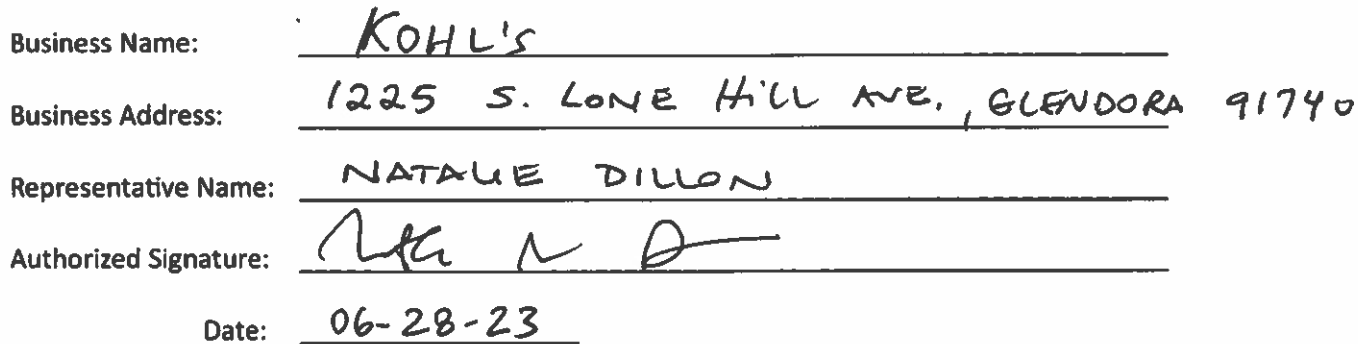 Business Name: KOHL'S
Business Address: 1225 S. LONE HILL AVE., GLENDORA 91740
Representative Name: NATALIE DILLON
Authorized Signature:
Date: 06-28-23